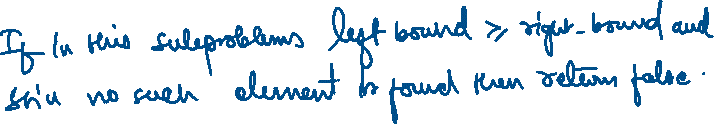 If in this subproblems left bound ≥ right-bound and
still no such element is found then return false.